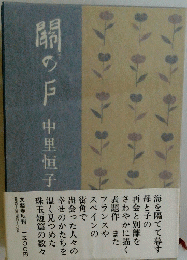 關の戸
中里恒子
海を隔てて暮す
母と子の
再会と別離を
さわやかに描く
表題作 また
フランスや
スペインの
街角で
出会った人々の
幸せのかたちを
温く見つめた
珠玉短篇の数々